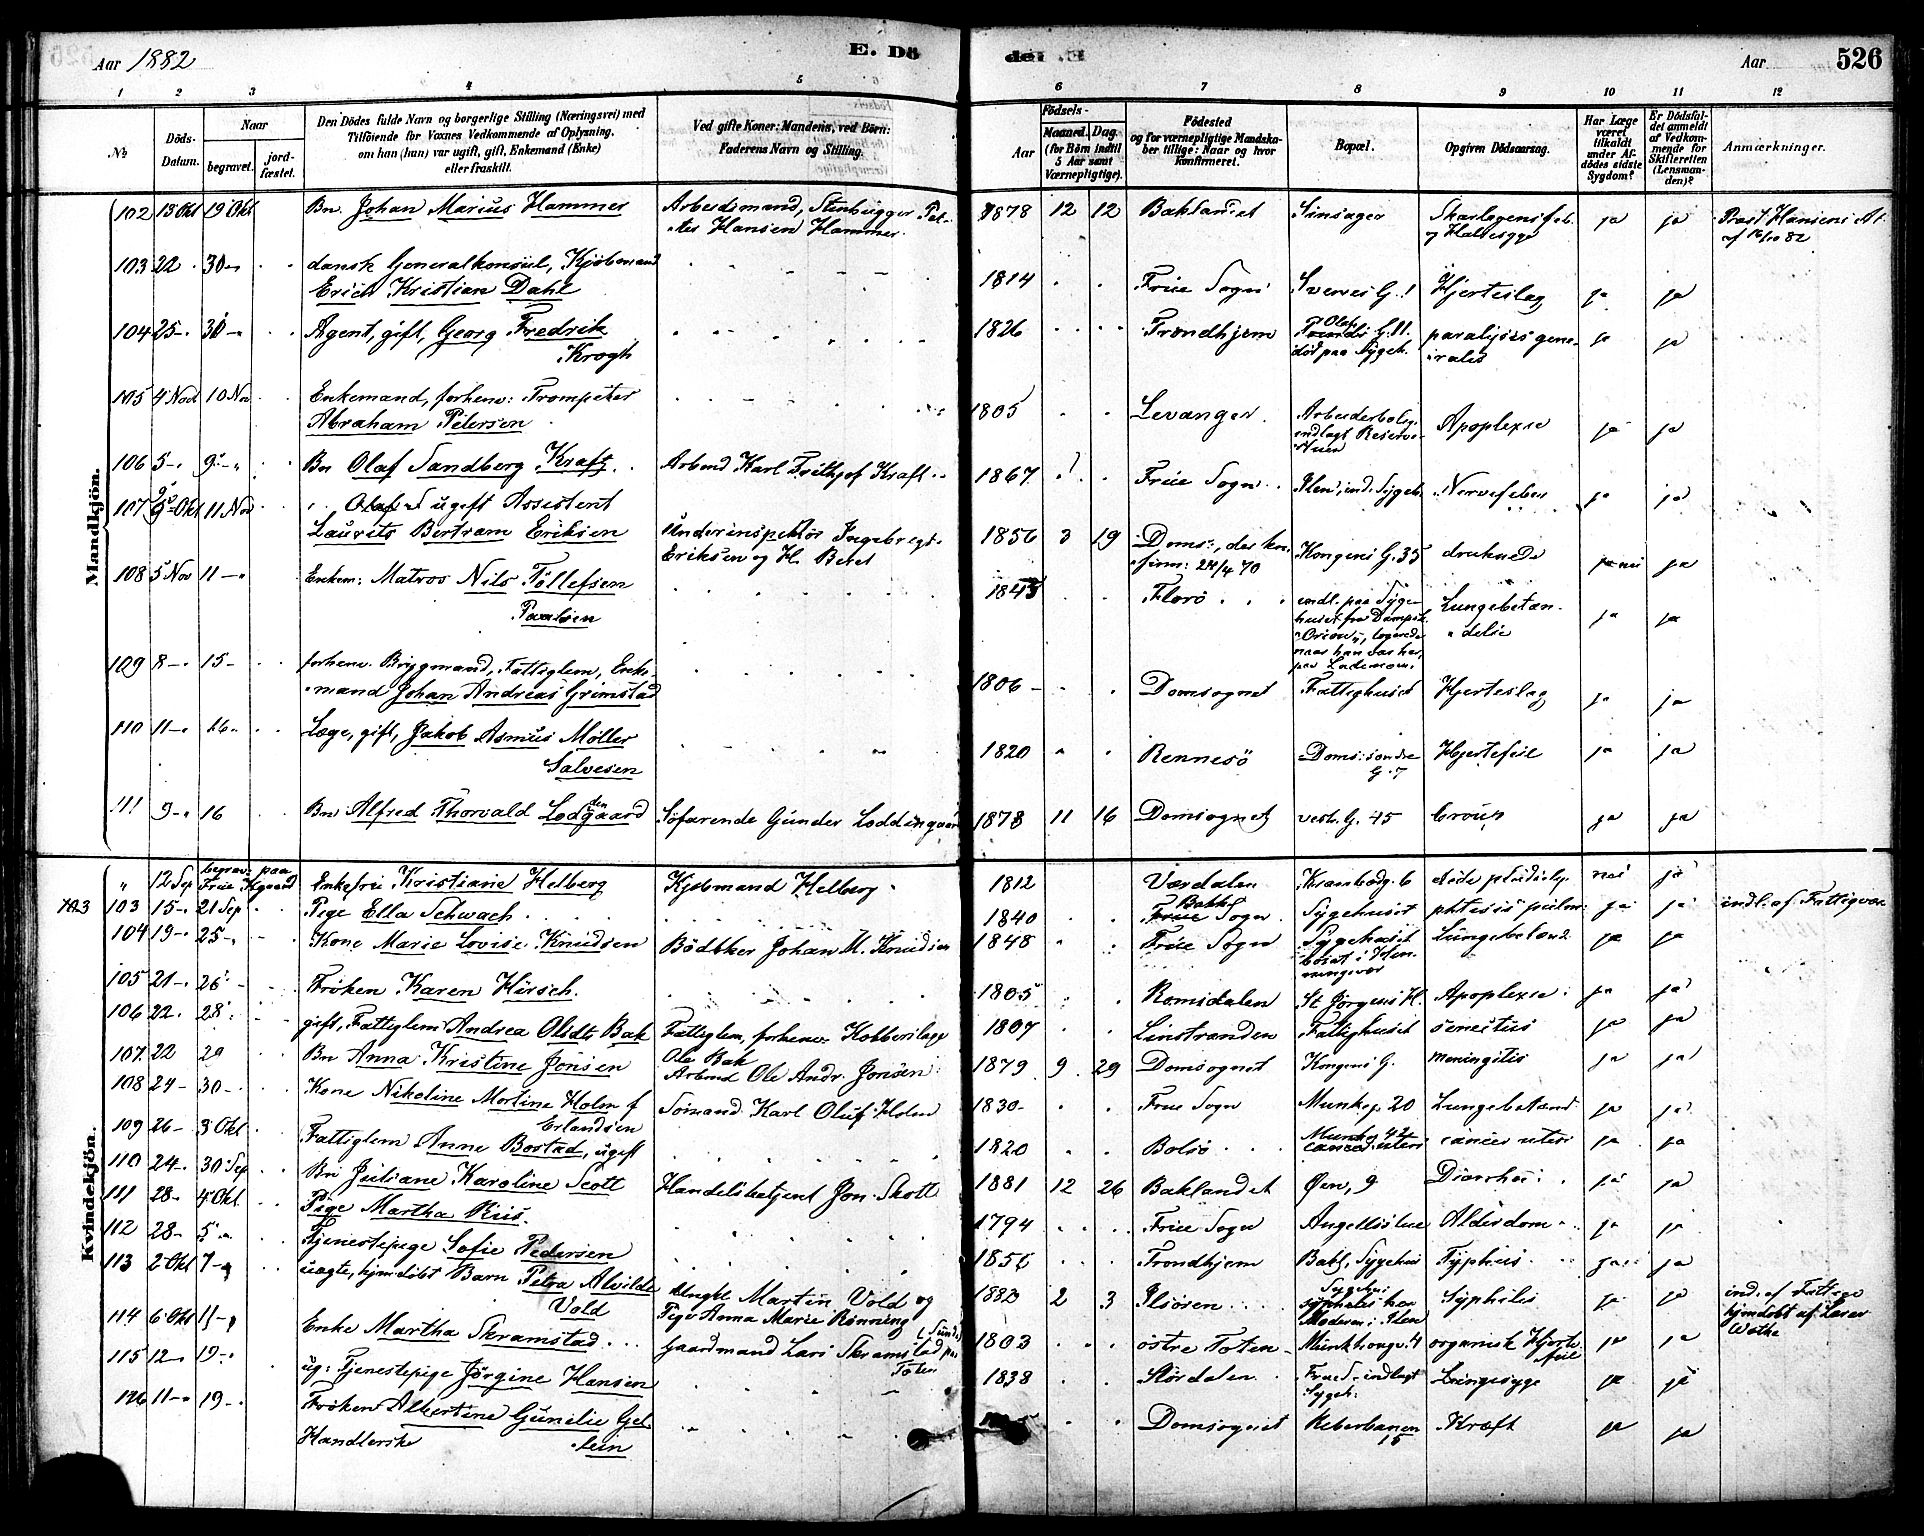 Aar 1882 E. Dö
der E. Aar 526
1 2 3 4 5 6 7 8 9 10 11 12
№ Döds-Datum. Naar begravet. jordfæstet. Den Dödes fulde Navn og borgerlige Stilling (Næringsvei) med Tilföiende for Voxnes Vedkommende af Oplysning, om han (hun) var ugift, gift, Enkemand (Enke) eller fraskilt. Ved gifte Koner: Mandens, ved Börn: Faderens Navn og Stilling.
Födsels- Aar Maaned. Dag. (for Börn indtil 5 Aar samt Værnepligtige). Födested og for værnepligtige Mandskaber tillige: Naar og hvor konfirmeret. Bopæl. Opgiven Dödsaarsag. Har Læge været tilkaldt under Afdödes sidste Sygdom? Er Dödsfaldet anmeldt af Vedkommende for Skifteretten (Lensmanden)? Anmærkninger.
Mandkjön.
102 13 Okt 19 Okt Bn. Johan Marius Hammer Arbeidsmand, Stenhugger Petter Hansen Hammer. 1878 12 12 Baklandet Sinsager Skarlagensfeb. og Halsesyge ja ja Præst Hansens At. af 16/10 82
103 22 30 dansk Generalkonsul, Kjöbmand
Erich Kristian Dahl 1814 Frue Sogn Sverres G. 1 Hjerteslag ja ja
104 25 30 Agent, gift, Georg Fredrik
Krogh 1826 Trondhjem Olafs G. 11. död paa Sygeh. paralysis generales ja ja
105 4 Nov 10 Nov Enkemand, forhenv: Trompeter
Abraham Petersen 1805 Levanger Arbeiderbolig. indlagt Reserve Apoplexie ja ja
106 5 9 Bn Olaf Sandberg Kraft Arbmd Karl Frithjof Kraft 1867 Frue Sogn Ilen, ind. Sygeh. Nervefeber ja ja
107 Okt 11 Nov ugift Assistent
Laurits Bertram Eriksen Underinspektör Ingebregt Eriksen og H. Betet 1856 3 19 Doms:, der konfirm: 24/4 70 Kongens G. 35 druknede nei ja
108 5 Nov 11 Enkem: Matros Nils Tollefsen
Paulsen Florö indl. paa Sygehuset fra Dampsk. "Orion", logerede naar han var her, paa Lademoen. Lungebetændelse ja ja
109 8 15 forhenv. Brygmand, Fattiglem, Enkemand Johan Andreas Grimstad 1806 Domsognet Fattighuset Hjerteslag ja ja
110 11 16 Læge, gift, Jakob Asmus Møller
Salvesen 1820 Rennesö Doms: söndre G. 7 Hjertefeil ja ja
111 9 16 Bn Alfred Thorvald Loddengaard Söfarende Gunder Loddengaard 1878 11 16 Domsognet vestr. G. 45 Croup ja ja
Kvindekjön.
" 12 Sep begrav: paa Frue Kgaard Enkefru Kristiane Helberg Kjöbmand Helberg 1812 Værdalen Krambodg. 6 nei ja
103 15 21 Sep Pige Ella Schwach 1840 Bakke Sogn Sygehuset phtisis pulm: ja ja indl. af Fattigvæs
104 19 25 Kone Marie Lovise Knudsen Bödtker Johan M. Knudsen 1848 Frue Sogn Sygehuset bosat i Henningsvær Lungebetænd. ja ja
105 21 26 Fröken Karen Hirsch. 1805 Romsdalen St Jörgens H. Apoplexie ja ja
106 22 28 gift, Fattiglem Andrea Olsdt. Bak Fattiglem, forhenv. Kobberslager Ole Bak 1807 Linstranden Fattighuset senectus ja ja
107 22 29 Bn Anna Kristine Jönsen Arbmd Ole Andr. Jönsen 1879 9 29 Domsognet Kongens G. meningitis ja ja
108 24 30 Kone Nikoline Martine Holm f
Erlandsen Sömand Karl Oluf Holm 1830 Frue Sogn Munkeg. 20 Lungebetænd ja ja
109 26 3 Okt Fattiglem Anne Bostad, ugift 1820 Bolsö Munkg 42 cancer uteri ja ja
110 24 30 Sep Bn Juliane Karoline Scott Handelsbetjent Jon Skott 1881 12 26 Baklandet Öen, 9 Diarrhö ja ja
111 28 4 Okt. Pige Martha Riis. 1794 Frue Sogn Angellstue Alderdom ja ja
112 28 5 Tjenestepige Sofie Pedersen Trondhjem Bakl. Sygehus Typhus ja ja
113 2 Okt 7 uægte, hjemdöbt Barn Petra Alvilde
Vold Ungkl Martin Vold og Pige Anna Marie Rönning 1882 2 3 Ilsören Sygehus Moderen i Ilen Syphilis ja ja ind. af Fattigv hjemdöbt af Lærer Wothe
114 6 Okt 11 Enke Martha Skramstad Gaardmand Lars Skramstad paa Toten 1803 östre Toten Munkhaugv. 4 organisk Hjertefeil ja ja
115 12 19 ug: Tjenestepige Jörgine Hansen 1838 Stördalen Frue S. indlagt Sygeh: Lungesyge ja ja
116 11 19 Fröken Albertine Gunilie Gellein
Handlerske Domsognet Reberbanen 15 Kræft ja ja